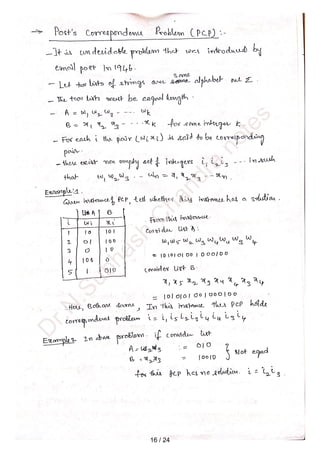 → Post's Correspondence Problem (PCP) :-
- It is undecidable problem that was introduced by
emil post in 1946.
- Let two lists of strings over same alphabet Σ.
- The two lists must be equal length.
- A = w1, w2, w3 - - - - wk
B = x1, x2, x3 - - - - xk for some integer k.
- For each i the pair (wi xi) is said to be corresponding
pair.
- there exist non empty set of integers i1, i2, i3 - - - in such
that w1, w2, w3 - - wn = x1, x2, x3 - - xn.
Example:1.
Given instance of PCP, tell whether this instance has a solution.
List A B
i wi xi
1 10 101
2 01 100
3 0 10
4 100 0
5 1 010
From this instance
Consider list A:
w1 w5 w2 w3 w4 w4 w3 w4
= 10101001000100
Consider list B:
x1 x5 x2 x3 x4 x4 x3 x4
Here, Both are same, In this instance this PCP holds
correspondence problem i =
Example2: In above problem. if consider list
A = w2w3 := 010
B = x2x3 = 10010 } Not equal
for this PCP has no solution. i = i2 i3.
16 / 24